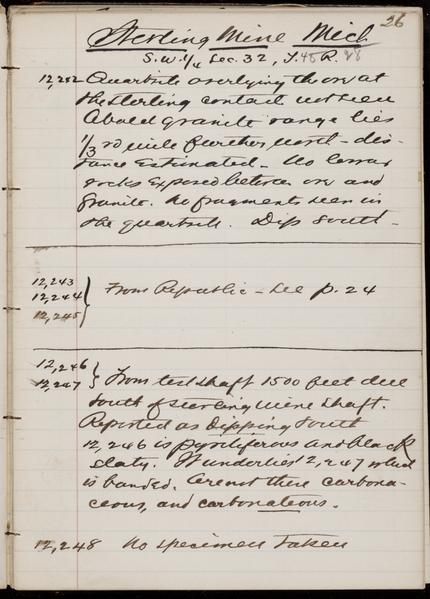 26
Sterling Mine Mich.
S.W. 1/4 Sec. 32, T. 48 R. 28
12,242 Quartzite overlying the ore at
the Sterling contact not seen
A bald granite range lies
1/3 rd mile further north - dis-
tance estimated - No
rocks exposed between ore and
granite. No fragments seen in
the quartzite. Dip South -
12,243
12,244 } From Republic - See p. 24
12,245
12,246
12,247 } From test shaft 1500 feet due
South of Sterling Mine Shaft.
Reported as dipping South
12,246 is pyritiferous and black
slaty. It underlies 12,247 which
is banded. Are not these carbona-
ceous, and carbonateous.
12,248 No specimen taken